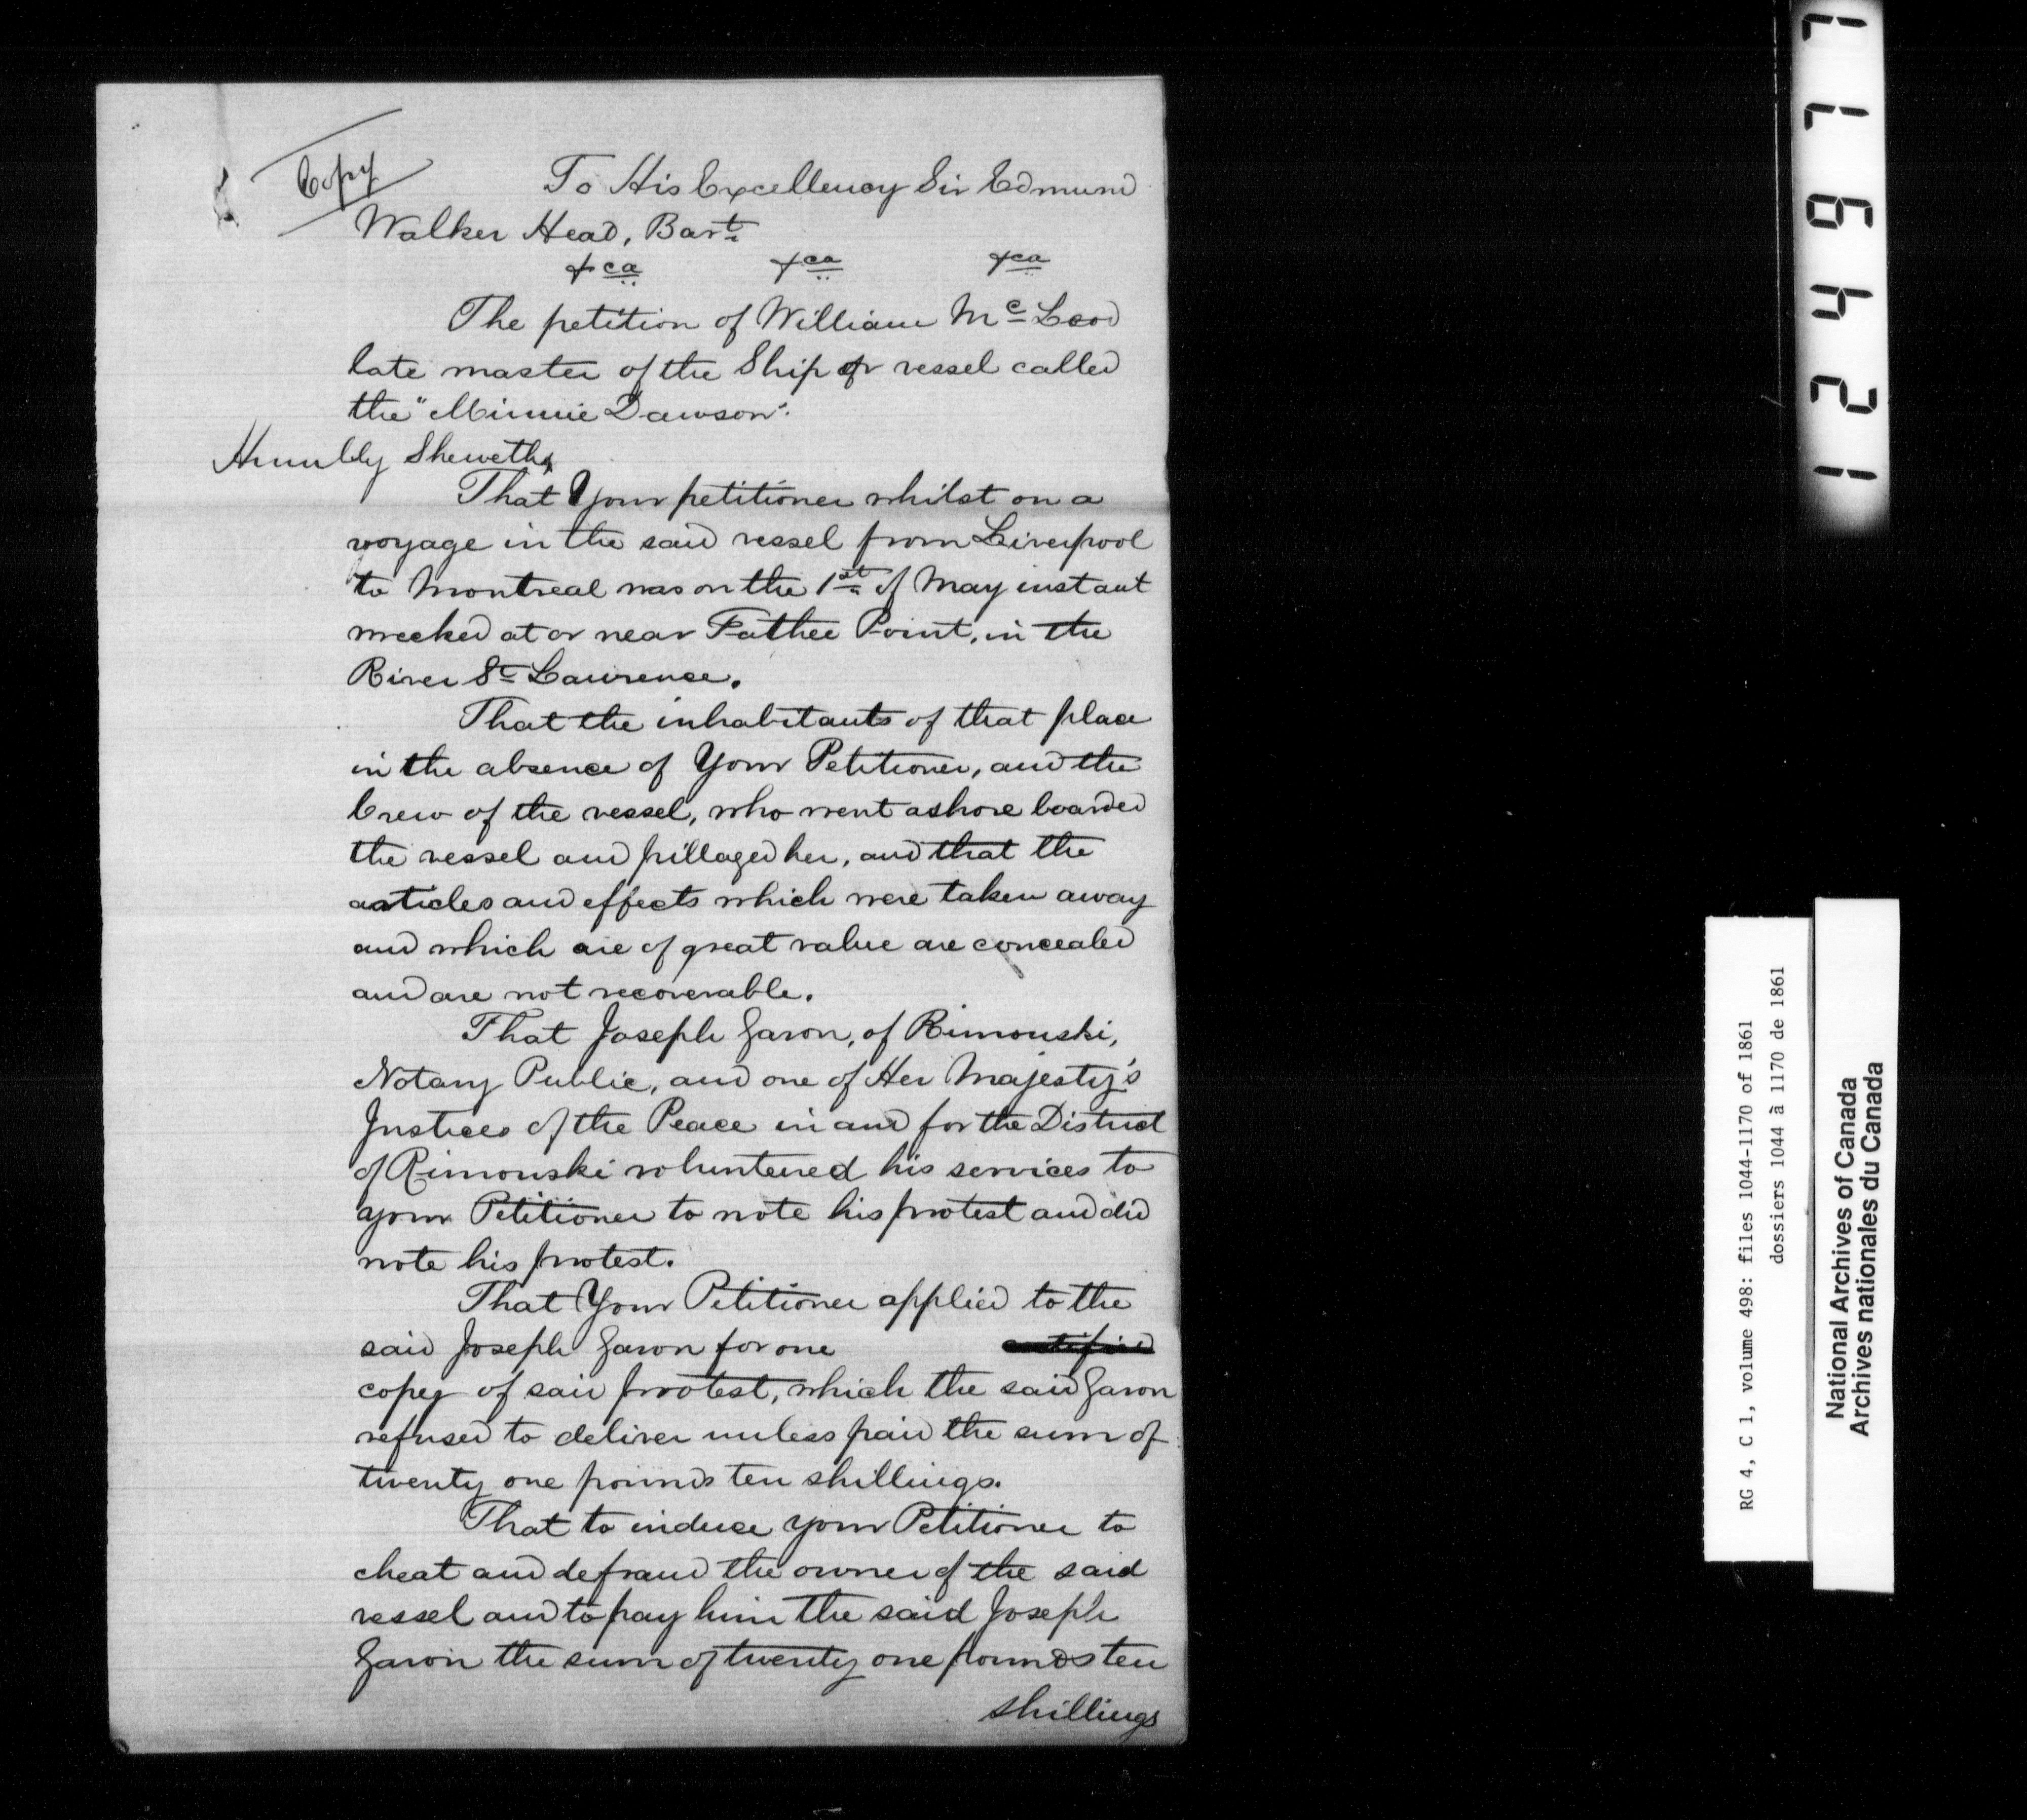 Copy
To His Excellency Sir Edmund
Walker Head, Bart.
&ca &ca &ca
The petition of William Mc Leod
late master of the Ship or vessel called
the "Minnie Dawson".
Humbly Sheweth,
That Your petitioner whilst on a
voyage in the said vessel from Liverpool
to Montreal was on the 1st of May instant
wrecked at or near Father Point, in the
River St Lawrence.
That the inhabitants of that place
in the absence of Your Petitioner, and the
Crew of the vessel, who went ashore boarded
the vessel and pillaged her, and that the
articles and effects which were taken away
and which are of great value are concealed
and are not recoverable.
That Joseph Garon, of Rimouski,
Notary Public, and one of Her Majesty's
Justices of the Peace in and for the District
of Rimouski voluntered his services to
your Petitioner to note his protest and did
note his protest.
That Your Petitioner applied to the
said Joseph Garon for one certified
copy of said protest, which the said Garon
refused to deliver unless paid the sum of
twenty one pounds ten shillings.
That to induce your Petitioner to
cheat and defraud the owner of the said
vessel and to pay him the said Joseph
Garon the sum of twenty one pounds ten
shillings
124677
RG 4, C 1, volume 498: files 1044-1170 of 1861
dossiers 1044 à 1170 de 1861
National Archives of Canada
Archives nationales du Canada